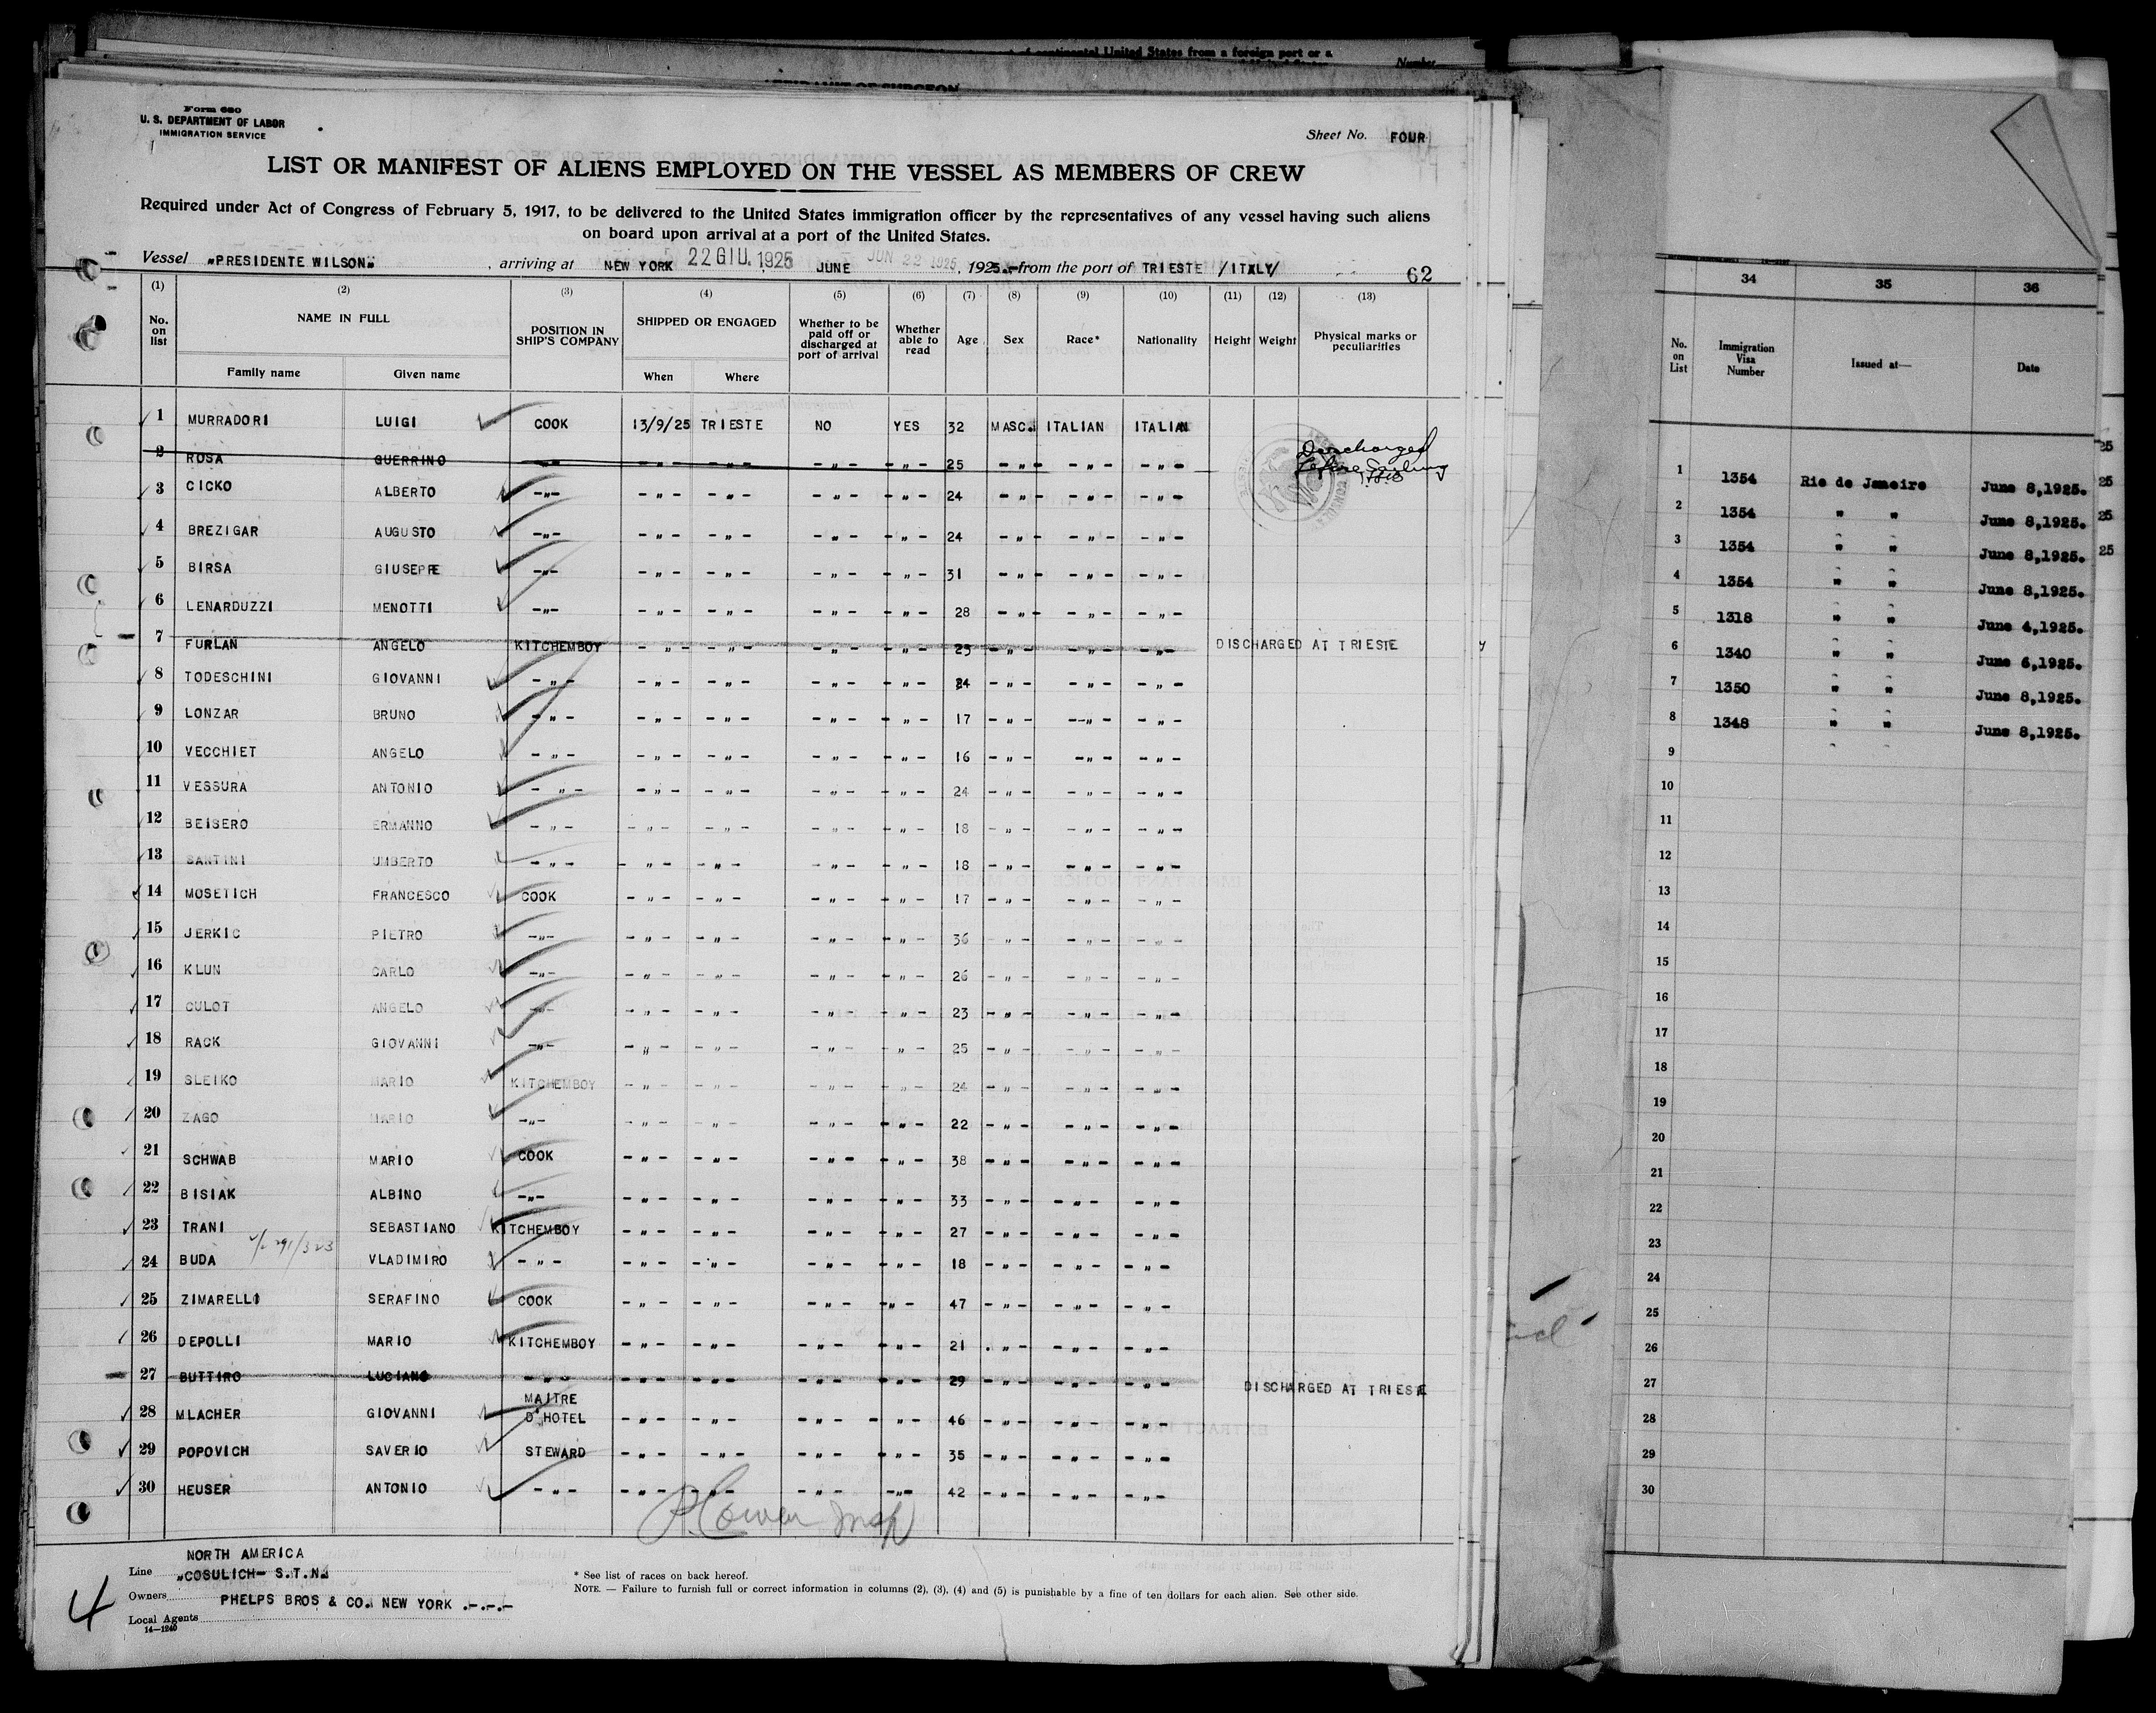 of continental United States from a foreign port or a
Number
AFFIDAVIT OF SURGEON
Form 680
U. S. DEPARTMENT OF LABOR
IMMIGRATION SERVICE
Sheet No. FOUR
LIST OR MANIFEST OF ALIENS EMPLOYED ON THE VESSEL AS MEMBERS OF CREW
Required under Act of Congress of February 5, 1917, to be delivered to the United States immigration officer by the representatives of any vessel having such aliens
on board upon arrival at a port of the United States.
Vessel "PRESIDENTE WILSON" , arriving at NEW YORK 22 GIU. 1925 JUNE JUN 22 1925 , 1925.- from the port of TRIESTE /ITALY/
62
(1) (2) (3) (4) (5) (6) (7) (8) (9) (10) (11) (12) (13)
No. on list NAME IN FULL Family name Given name POSITION IN SHIP'S COMPANY SHIPPED OR ENGAGED When Where Whether to be paid off or discharged at port of arrival Whether able to read Age Sex Race* Nationality Height Weight Physical marks or peculiarities
1 MURRADORI LUIGI COOK 13/9/25 TRIESTE NO YES 32 MASC. ITALIAN ITALIAN
2 ROSA GUERRINO -"- -"- -"- -"- -"- 25 -"- -"- -"- Discharged before Sailing
3 CICKO ALBERTO -"- -"- -"- -"- -"- 24 -"- -"- -"-
4 BREZIGAR AUGUSTO -"- -"- -"- -"- -"- 24 -"- -"- -"-
5 BIRSA GIUSEPPE -"- -"- -"- -"- -"- 31 -"- -"- -"-
6 LENARDUZZI MENOTTI -"- -"- -"- -"- -"- 28 -"- -"- -"-
7 FURLAN ANGELO KITCHEMBOY -"- -"- -"- -"- 23 -"- -"- -"- DISCHARGED AT TRIESTE
8 TODESCHINI GIOVANNI -"- -"- -"- -"- -"- 24 -"- -"- -"-
9 LONZAR BRUNO -"- -"- -"- -"- -"- 17 -"- -"- -"-
10 VECCHIET ANGELO -"- -"- -"- -"- -"- 16 -"- -"- -"-
11 VESSURA ANTONIO -"- -"- -"- -"- -"- 24 -"- -"- -"-
12 BEISERO ERMANNO -"- -"- -"- -"- -"- 18 -"- -"- -"-
13 SANTINI UMBERTO -"- -"- -"- -"- -"- 18 -"- -"- -"-
14 MOSETICH FRANCESCO COOK -"- -"- -"- -"- 17 -"- -"- -"-
15 JERKIC PIETRO -"- -"- -"- -"- -"- 36 -"- -"- -"-
16 KLUN CARLO -"- -"- -"- -"- -"- 26 -"- -"- -"-
17 CULOT ANGELO -"- -"- -"- -"- -"- 23 -"- -"- -"-
18 RACK GIOVANNI -"- -"- -"- -"- -"- 25 -"- -"- -"-
19 SLEIKO MARIO KITCHEMBOY -"- -"- -"- -"- 24 -"- -"- -"-
20 ZAGO MARIO -"- -"- -"- -"- -"- 22 -"- -"- -"-
21 SCHWAB MARIO COOK -"- -"- -"- -"- 38 -"- -"- -"-
22 BISIAK ALBINO -"- -"- -"- -"- -"- 33 -"- -"- -"-
23 TRANI SEBASTIANO KITCHEMBOY -"- -"- -"- -"- 27 -"- -"- -"-
24 BUDA VLADIMIRO -"- -"- -"- -"- -"- 18 -"- -"- -"-
25 ZIMARELLI SERAFINO COOK -"- -"- -"- -"- 47 -"- -"- -"-
26 DEPOLLI MARIO KITCHEMBOY -"- -"- -"- -"- 21 -"- -"- -"-
27 BUTTIRO LUCIANO -"- -"- -"- -"- -"- 29 -"- -"- -"- DISCHARGED AT TRIESTE
28 MLACHER GIOVANNI MAITRE D'HOTEL -"- -"- -"- -"- 46 -"- -"- -"-
29 POPOVICH SAVERIO STEWARD -"- -"- -"- -"- 35 -"- -"- -"-
30 HEUSER ANTONIO -"- -"- -"- -"- -"- 42 -"- -"- -"-
NORTH AMERICA
Line "COSULICH- S.T.N."
Owners PHELPS BROS & CO. NEW YORK .-.-.-
Local Agents
14—1240
4
* See list of races on back hereof.
NOTE. — Failure to furnish full or correct information in columns (2), (3), (4) and (5) is punishable by a fine of ten dollars for each alien. See other side.
34 35 36
No. on List Immigration Visa Number Issued at— Date
1 1354 Rio de Janeiro June 8,1925.
2 1354 " " June 8,1925.
3 1354 " " June 8,1925.
4 1354 " " June 8,1925.
5 1318 " " June 4,1925.
6 1340 " " June 6,1925.
7 1350 " " June 8,1925.
8 1348 " " June 8,1925.
9
10
11
12
13
14
15
16
17
18
19
20
21
22
23
24
25
26
27
28
29
30
25
25
25
25